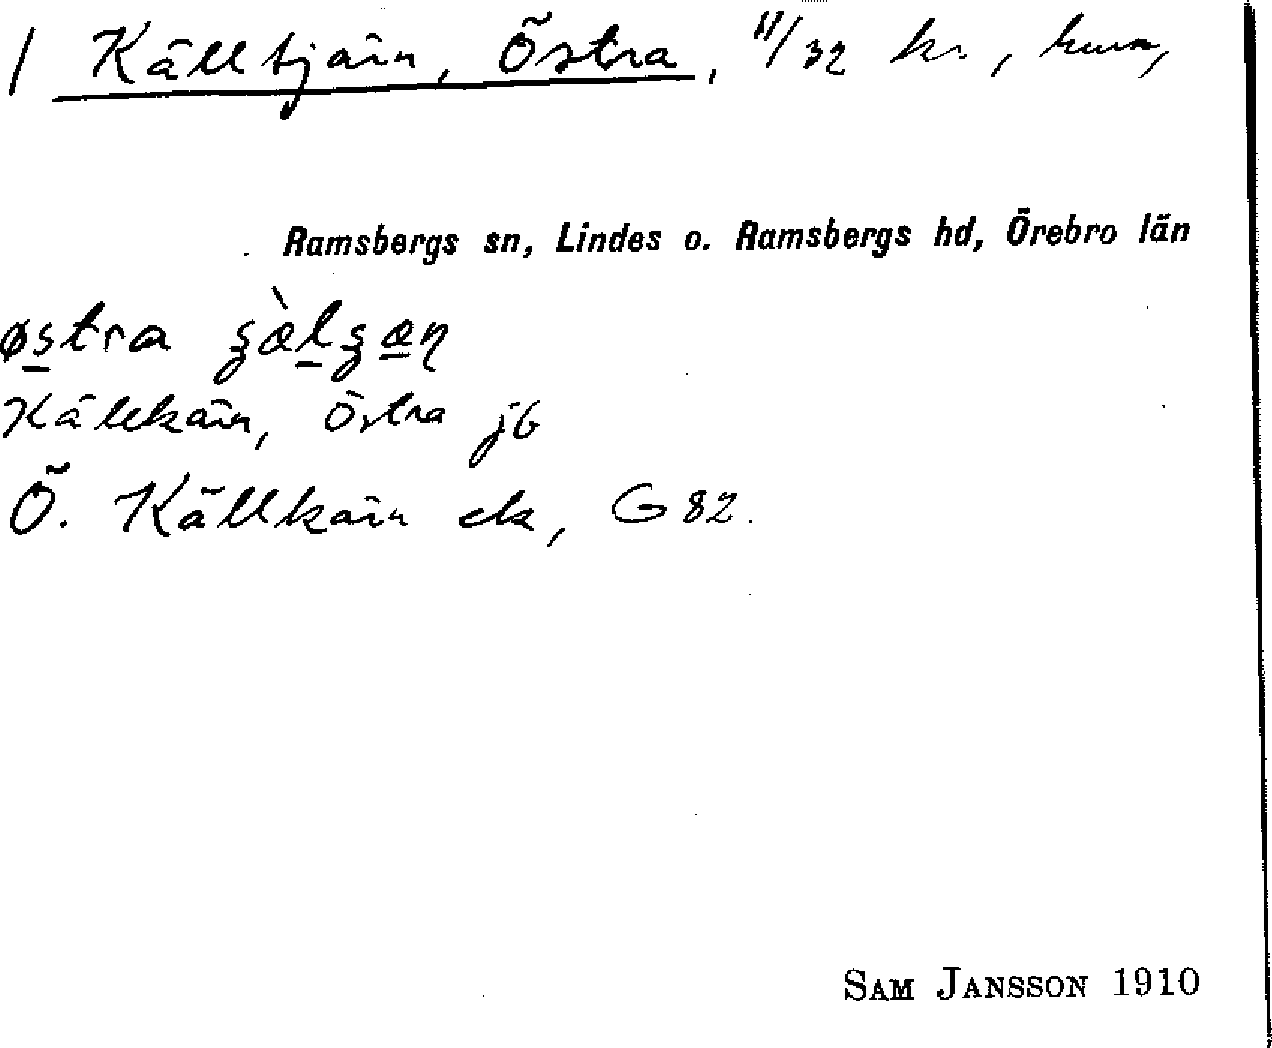 / Källtjärn, Östra, 11/32 kr., hmn,
Ramsbergs sn, Lindes o. Ramsbergs hd, Örebro län
østra
Källkärn, Östra jb
Ö. Källkärn ek, G 82.
SAM JANSSON 1910